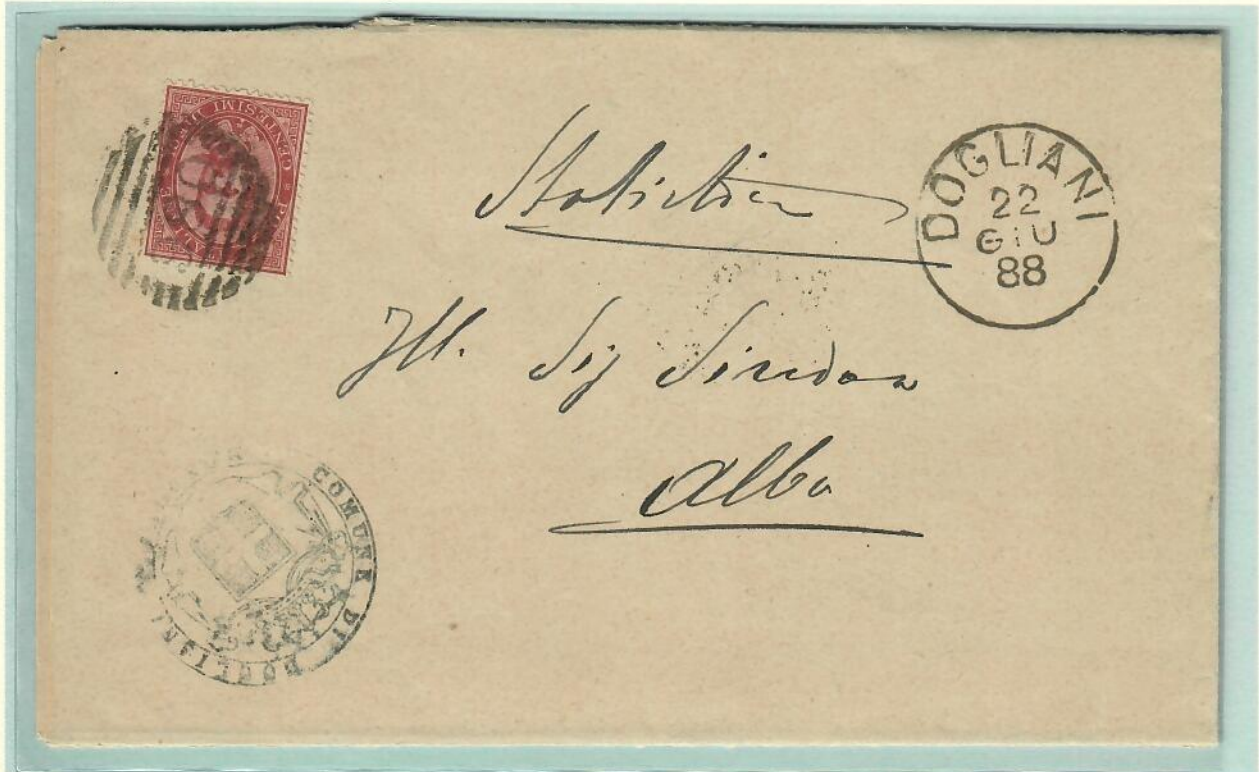 CENTESIMI
Statistica
DOGLIANI
22
GIU
88
Ill. Sig Sindaco
Alba
COMUNE DI DOGLIANI